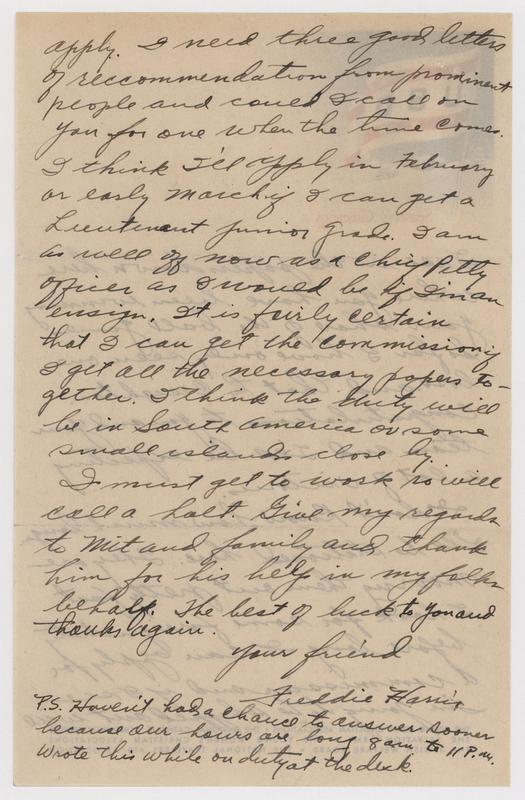 apply. I need three good letters
of reccommendation from prominent
people and could I call on
you for one when the time comes.
I think I'll apply in February
or early March if I can get a
Lieutenant junior grade. I am
as well off now as a Chief Petty
officer as I would be if I'm an
ensign. It is fairly certain
that I can get the commission if
I get all the necessary papers to-
gether. I think the duty will
be in South America or some
small islands close by.
I must get to work so will
call a halt. Give my regards
to Mit and family and thank
him for his help in my folks
behalf. The best of luck to you and
thanks again.
Your friend
Freddie Harris
P.S. Haven't had a chance to answer sooner
because our hours are long 8 am to 11 P.M.
Wrote this while on duty at the desk.